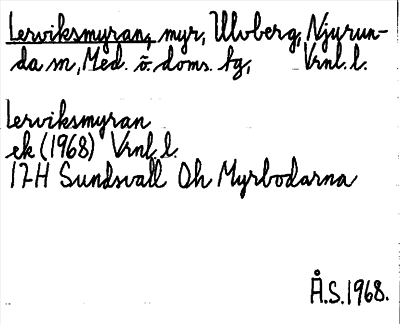 Lerviksmyran, myr, Ulvberg, Njurun-
da sn, Med. ö. doms. tg, Vrnl. l.
Lerviksmyran
ek (1968) Vrnl. l.
17H Sundsvall Oh Myrbodarna
Å.S. 1968.